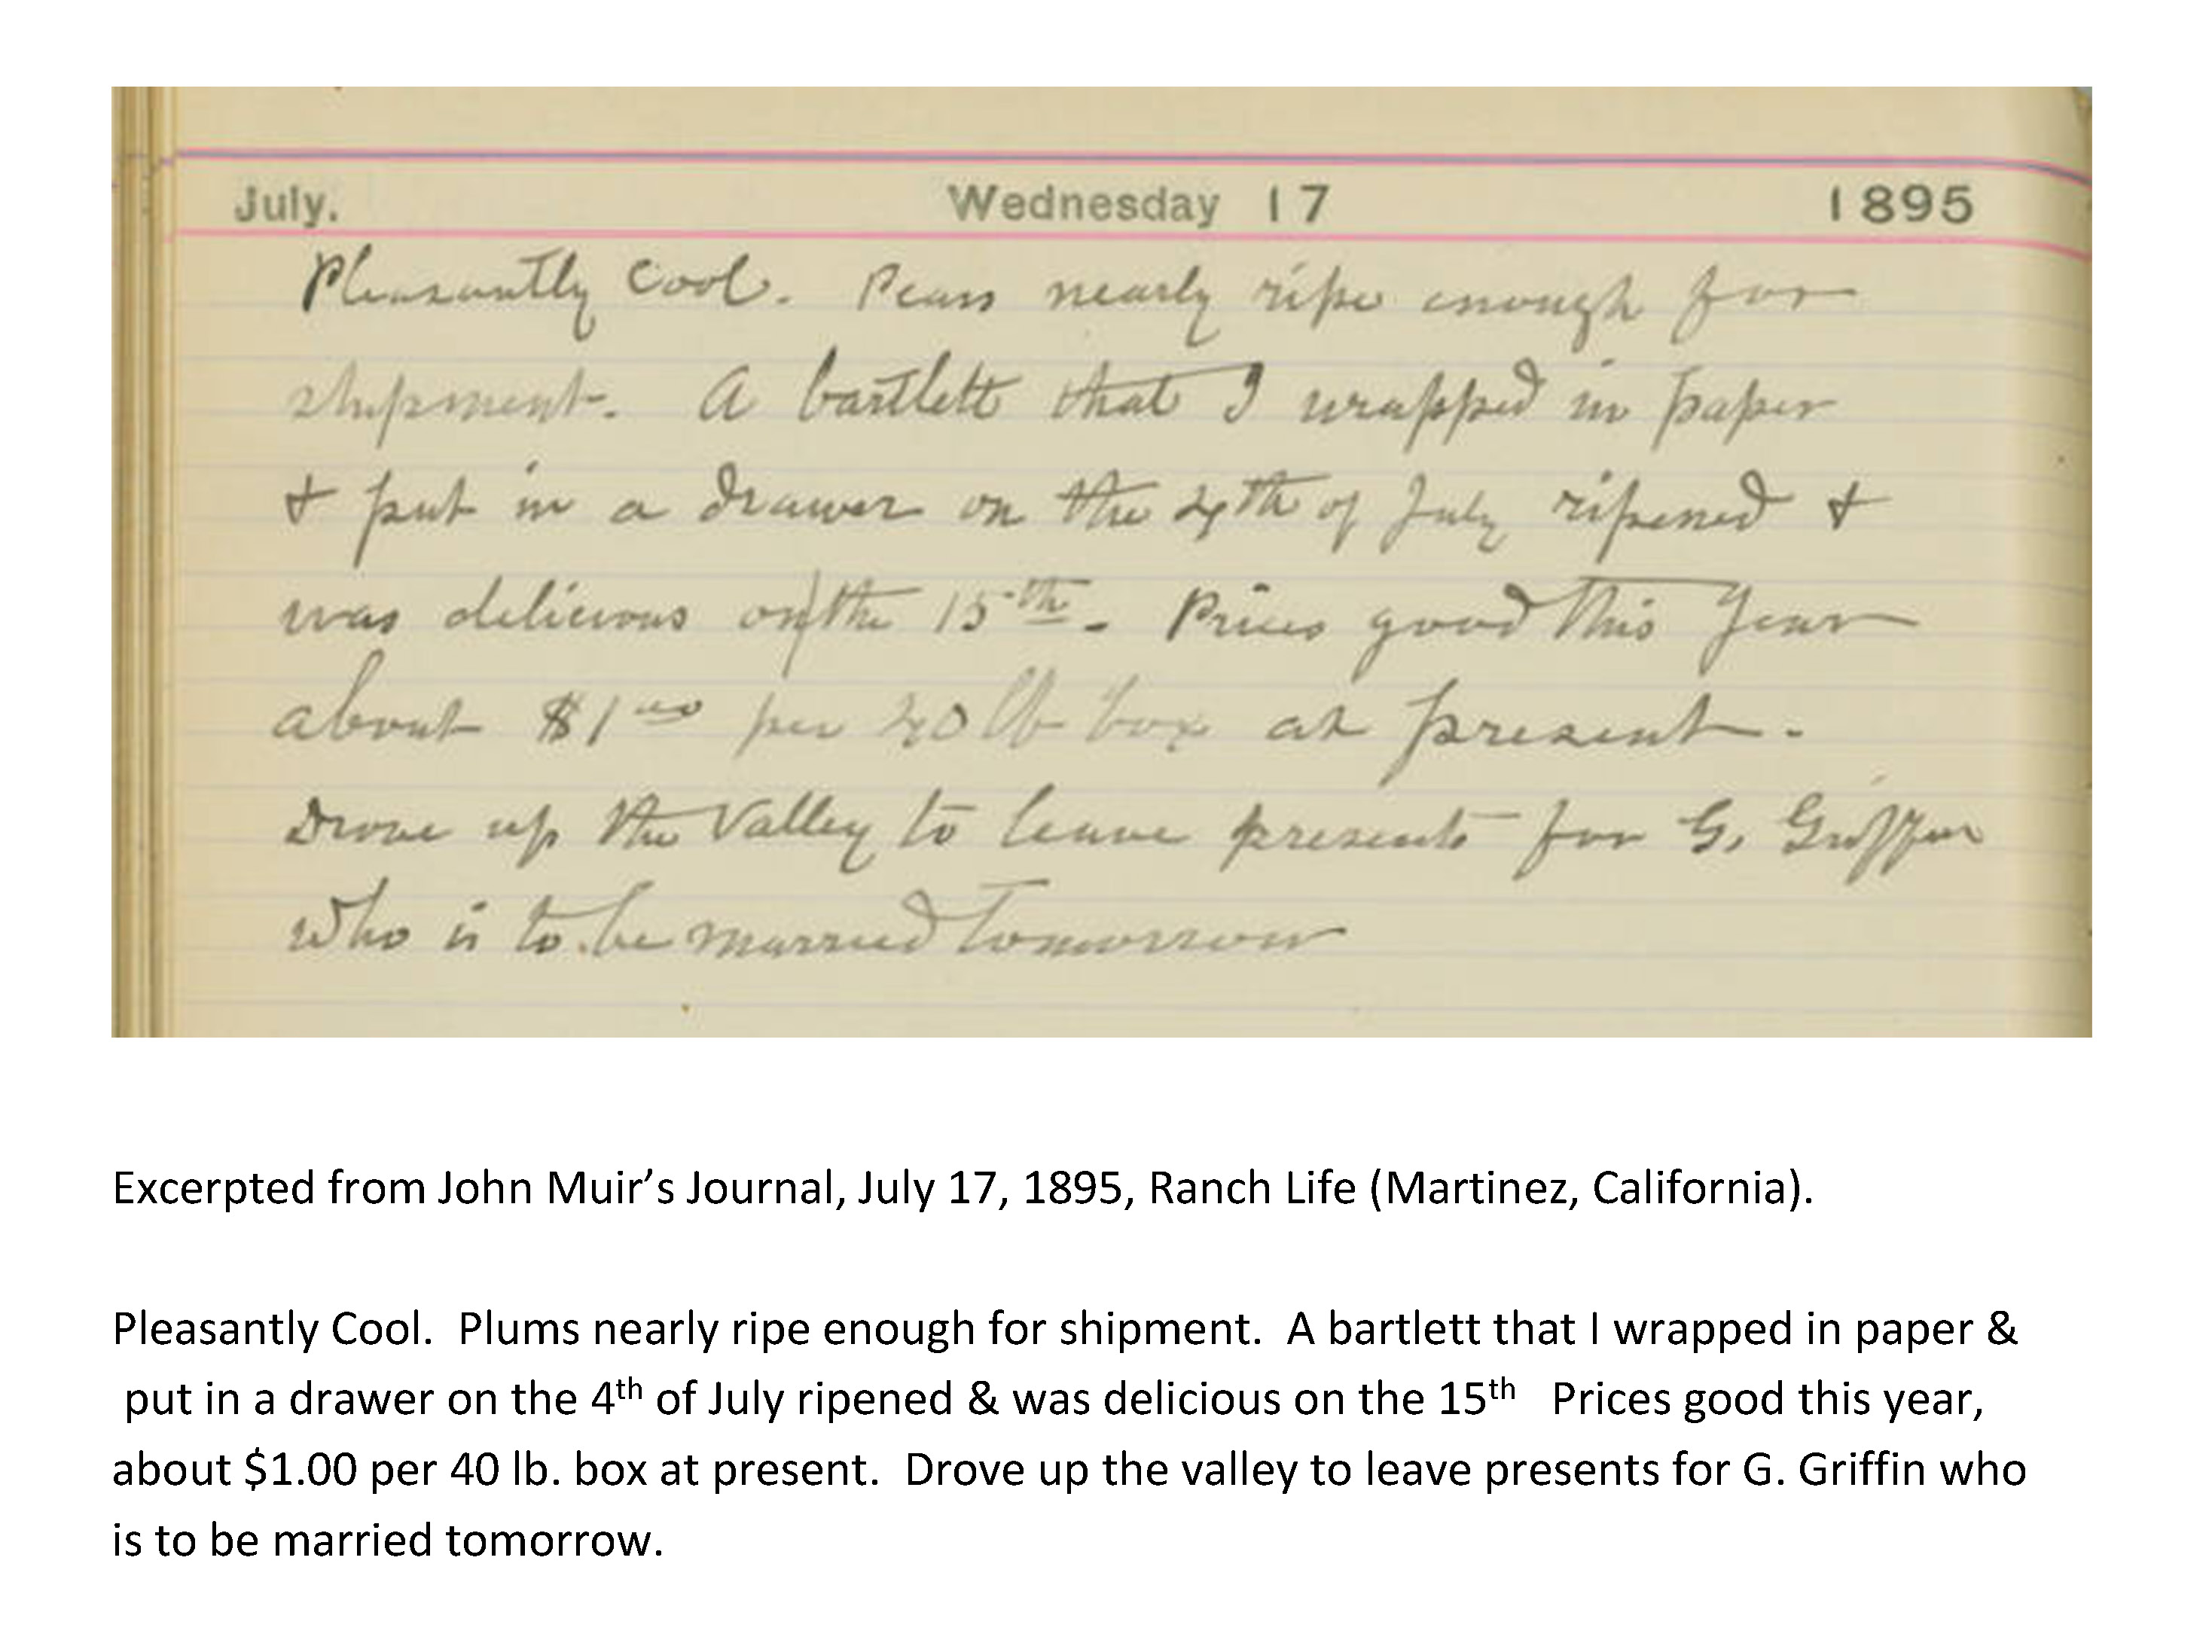 July. Wednesday 17 1895
Pleasantly Cool. Pears nearly ripe enough for
shipment. A bartlett that I wrapped in paper
& put in a drawer on the 4th of July ripened &
was delicious on the 15th. Prices good this year
about $1.00 per 40 lb box at present.
Drove up the Valley to leave presents for G. Griffin
who is to be married tomorrow
Excerpted from John Muir’s Journal, July 17, 1895, Ranch Life (Martinez, California).
Pleasantly Cool.  Plums nearly ripe enough for shipment.  A bartlett that I wrapped in paper &
put in a drawer on the 4th of July ripened & was delicious on the 15th   Prices good this year,
about $1.00 per 40 lb. box at present.  Drove up the valley to leave presents for G. Griffin who
is to be married tomorrow.